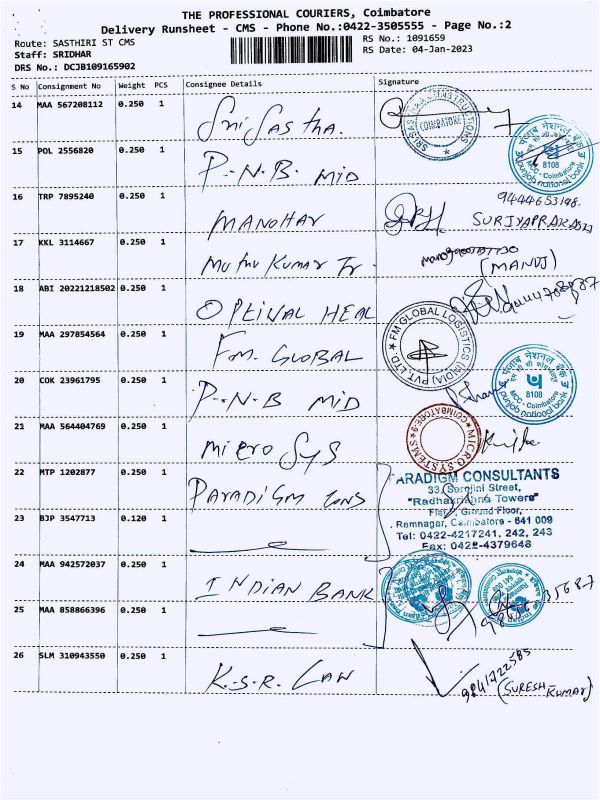 THE PROFESSIONAL COURIERS, Coimbatore
Delivery Runsheet - CMS - Phone No.:0422-3505555 - Page No.:2
Route: SASTHIRI ST CMS
RS No.: 1091659
Staff: SRIDHAR
RS Date: 04-Jan-2023
DRS No.: DCJB109165902
S No Consignment No Weight PCS Consignee Details Signature
14 MAA 567208112 0.250 1 Sri Sastha.
COIMBATORE
15 POL 2556820 0.250 1 P.N.B. MID
पंजाब नेशनल बैंक
8108
MCC - Coimbatore
punjab national bank
16 TRP 7895240 0.250 1 MANOHAR
SURIYAPRAKASH
17 KKL 3114667 0.250 1 Muthu Kumar Tr.
(MANOJ)
18 ABI 20221218502 0.250 1 OPEINAL HEAL
19 MAA 297854564 0.250 1 FM. GLOBAL
FM GLOBAL LOGISTICS (INDIA) PVT. LTD.
20 COK 23961795 0.250 1 P.N.B MID
पंजाब नेशनल बैंक
8108
MCC - Coimbatore
punjab national bank
21 MAA 564404769 0.250 1 MICRO SYS
MICRO SYSTEMS COIMBATORE-9
22 MTP 1202877 0.250 1 PARADIGM CONS
ARADIGM CONSULTANTS
33, Sarojini Street,
"Radhakrishna Towers"
Flat, Ground Floor,
Ramnagar, Coimbatore - 641 009
Tel: 0422-4217241, 242, 243
Fax: 0422-4379648
23 BJP 3547713 0.120 1
24 MAA 942572037 0.250 1 INDIAN BANK
25 MAA 858866396 0.250 1
26 SLM 310943550 0.250 1 K.S.R. LAW
9841722585
(SURESH KUMAR)